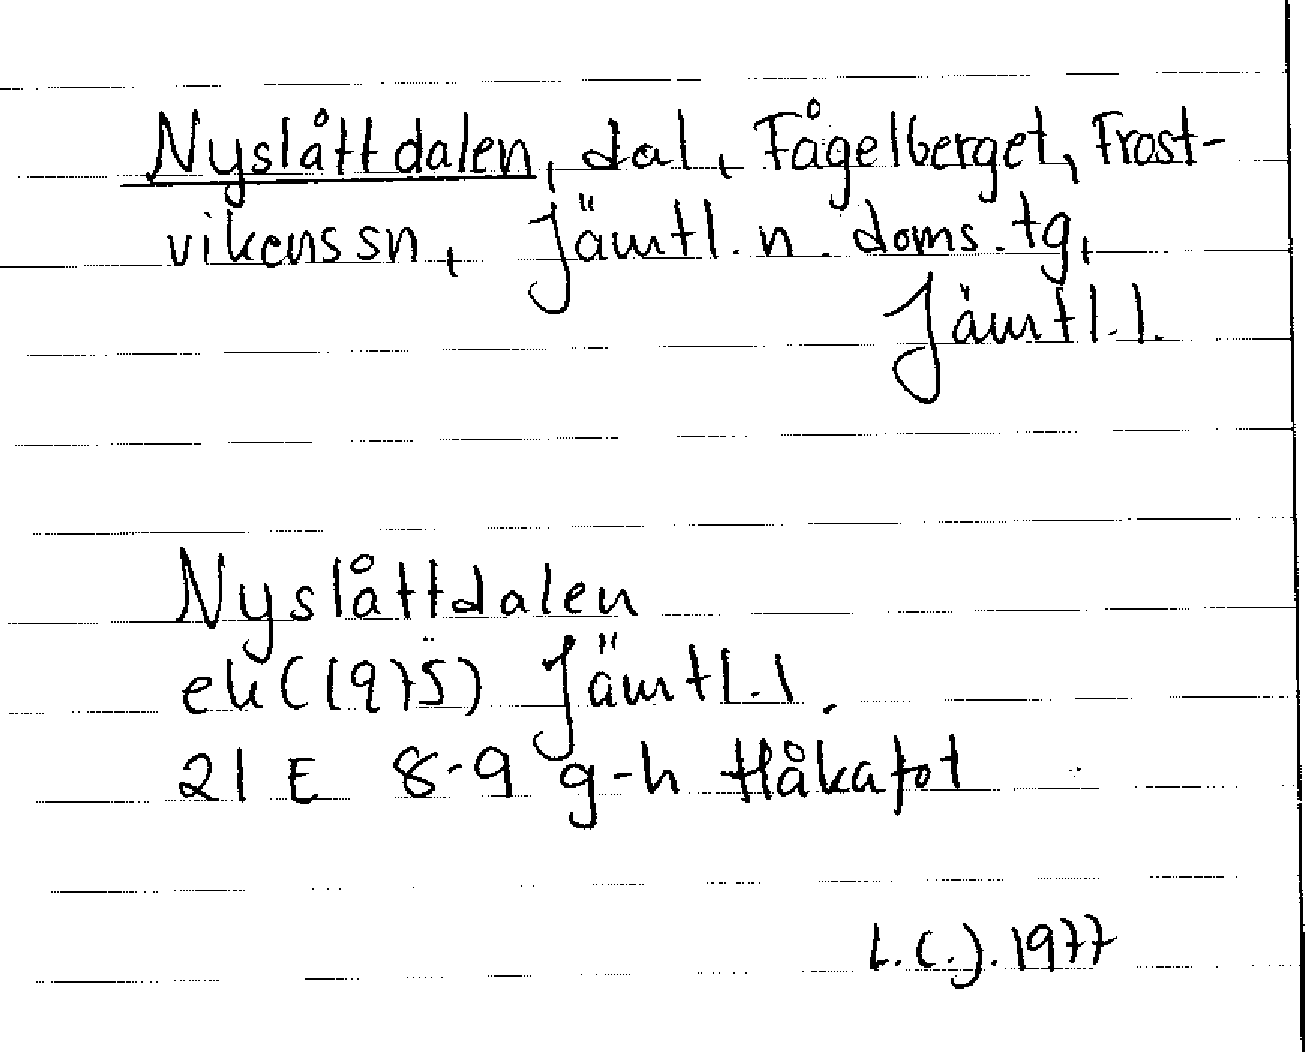 Nyslåttdalen, dal, Fågelberget, Frost-
vikens sn, Jämtl. n. doms. tg,
Jämtl. l.
Nyslåttdalen
ek (1975) Jämtl. l.
21 E 8-9 g-h Håkafot
L.C.J. 1977